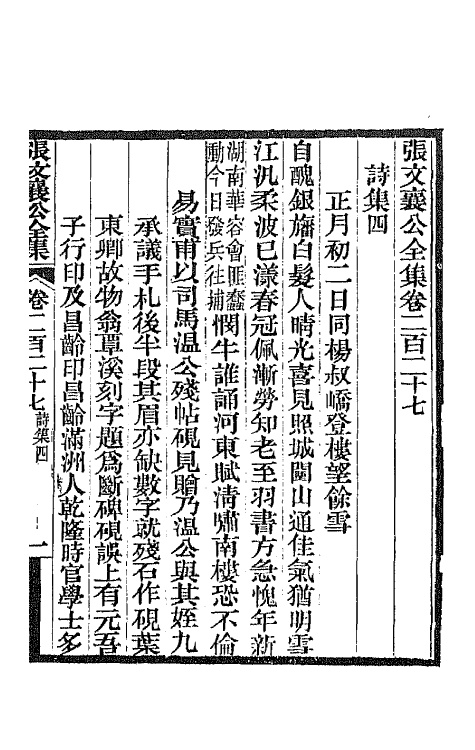 張文襄公全集卷二百二十七
詩集四
正月初二日同楊叔嶠登樓望餘雪
自醜銀旛白髮人晴光喜見照城闉山通佳氣猶明雪
江汎柔波已漾春冠佩漸勞知老至羽書方急愧年新
湖南華容會匪蠢
動今日發兵往捕
憫牛誰誦河東賦清嘯南樓恐不倫
易實甫以司馬溫公殘帖硯見贈乃溫公與其姪九
承議手札後半段其眉亦缺數字就殘石作硯葉
東卿故物翁覃溪刻字題爲斷碑硯誤上有元吾
子行印及昌齡印昌齡滿洲人乾隆時官學士多
張文襄公全集 卷二百二十七 詩集四 一